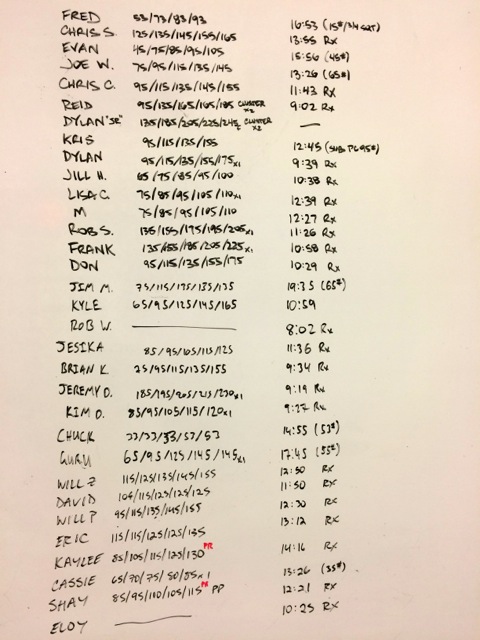 FRED 53/73/83/93 16:53 (15#/3/4 SQT)
CHRIS S. 125/135/145/155/165 13:55 Rx
EVAN 45/75/85/95/105 15:56 (45#)
JOE W. 75/95/115/135/145 13:26 (65#)
CHRIS C. 95/115/135/145/155 11:43 Rx
REID 95/135/165/165/185 CLUSTER x2 9:02 Rx
DYLAN "SR" 135/185/205/225/245 CLUSTER x2 —
KRIS 95/115/135/155 12:45
DYLAN 95/115/135/155/175x1 9:39 Rx
JILL H. 65/75/85/95/100 10:38 Rx
LISA C. 75/85/95/105/110x1 12:39 Rx
M 75/85/95/105/110 12:27 Rx
ROB S. 135/155/175/195/205x1 11:26 Rx
FRANK 135/155/185/205/225x1 10:58 Rx
DON 95/115/135/155/175 10:29 Rx
JIM M. 75/115/125/135/135 19:35 (65#)
KYLE 65/95/125/145/165 10:59
ROB W. — 8:02 Rx
JESIKA 85/95/105/115/125 11:36 Rx
BRIAN K. 75/95/115/135/155 9:34 Rx
JEREMY D. 185/195/205/215/230x1 9:19 Rx
KIM D. 85/95/105/115/120x1 9:27 Rx
CHUCK 33/33/33/53/53 14:55 (53#)
GURU 65/95/125/145/145x1 17:45 (55#)
WILL Z 115/125/135/145/155 12:50 Rx
DAVID 105/115/125/125/125 11:50 Rx
WILL P 95/115/135/145/155 12:30 Rx
ERIC 115/115/125/125/135 13:12 Rx
KAYLEE 85/105/115/125/130 PR 14:16 Rx
CASSIE 65/70/75/80/85x1 13:26 (35#)
SHAY 85/95/110/105/115 PR PP 12:21 Rx
ELOY — 10:25 Rx